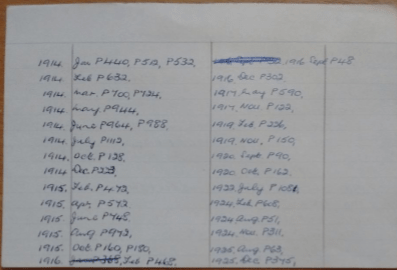 1914. Jan P440, P512, P532,
1914. Feb P632.
1914. Mar. P700, P724,
1914. May P944,
1914. June P964, P988,
1914. July P1112,
1914. Oct. P128,
1914 Dec. P223,
1915. Feb. P472,
1915. Apr. P572
1915. June P748
1915. Aug P972,
1915. Oct P160, P180,
1916. Feb P468.
1916 Sept P48
1916 Dec P302
1917 May P590,
1917. Nov. P122,
1919 Feb P226,
1919. Nov, P150,
1920. Sept P90,
1920 Oct. P162.
1922. July
1924. Feb P608,
1924 Aug P51,
1924 Nov. P311,
1925 Aug. P63,
1925 Dec. P395,